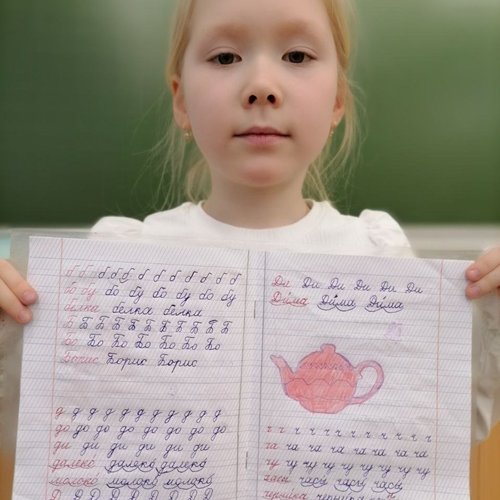 б б б б б б б б б б б
бо бу бо бу бо бу бо бу
белка белка белка
Б Б Б Б Б Б Б Б Б Б Б
Бо Бо Бо Бо Бо Бо
Борис Борис Борис
д д д д д д д д д д
до до до до до до до
ди ди ди ди ди ди
далеко далеко далеко
молоко молоко молоко
Д Д Д Д Д Д Д Д
Ди Ди Ди Ди Ди Ди
Дима Дима Дима
ч ч ч ч ч ч ч ч ч ч ч
ча ча ча ча ча ча ча
чу чу чу чу чу чу чу чу
часы часы часы часы